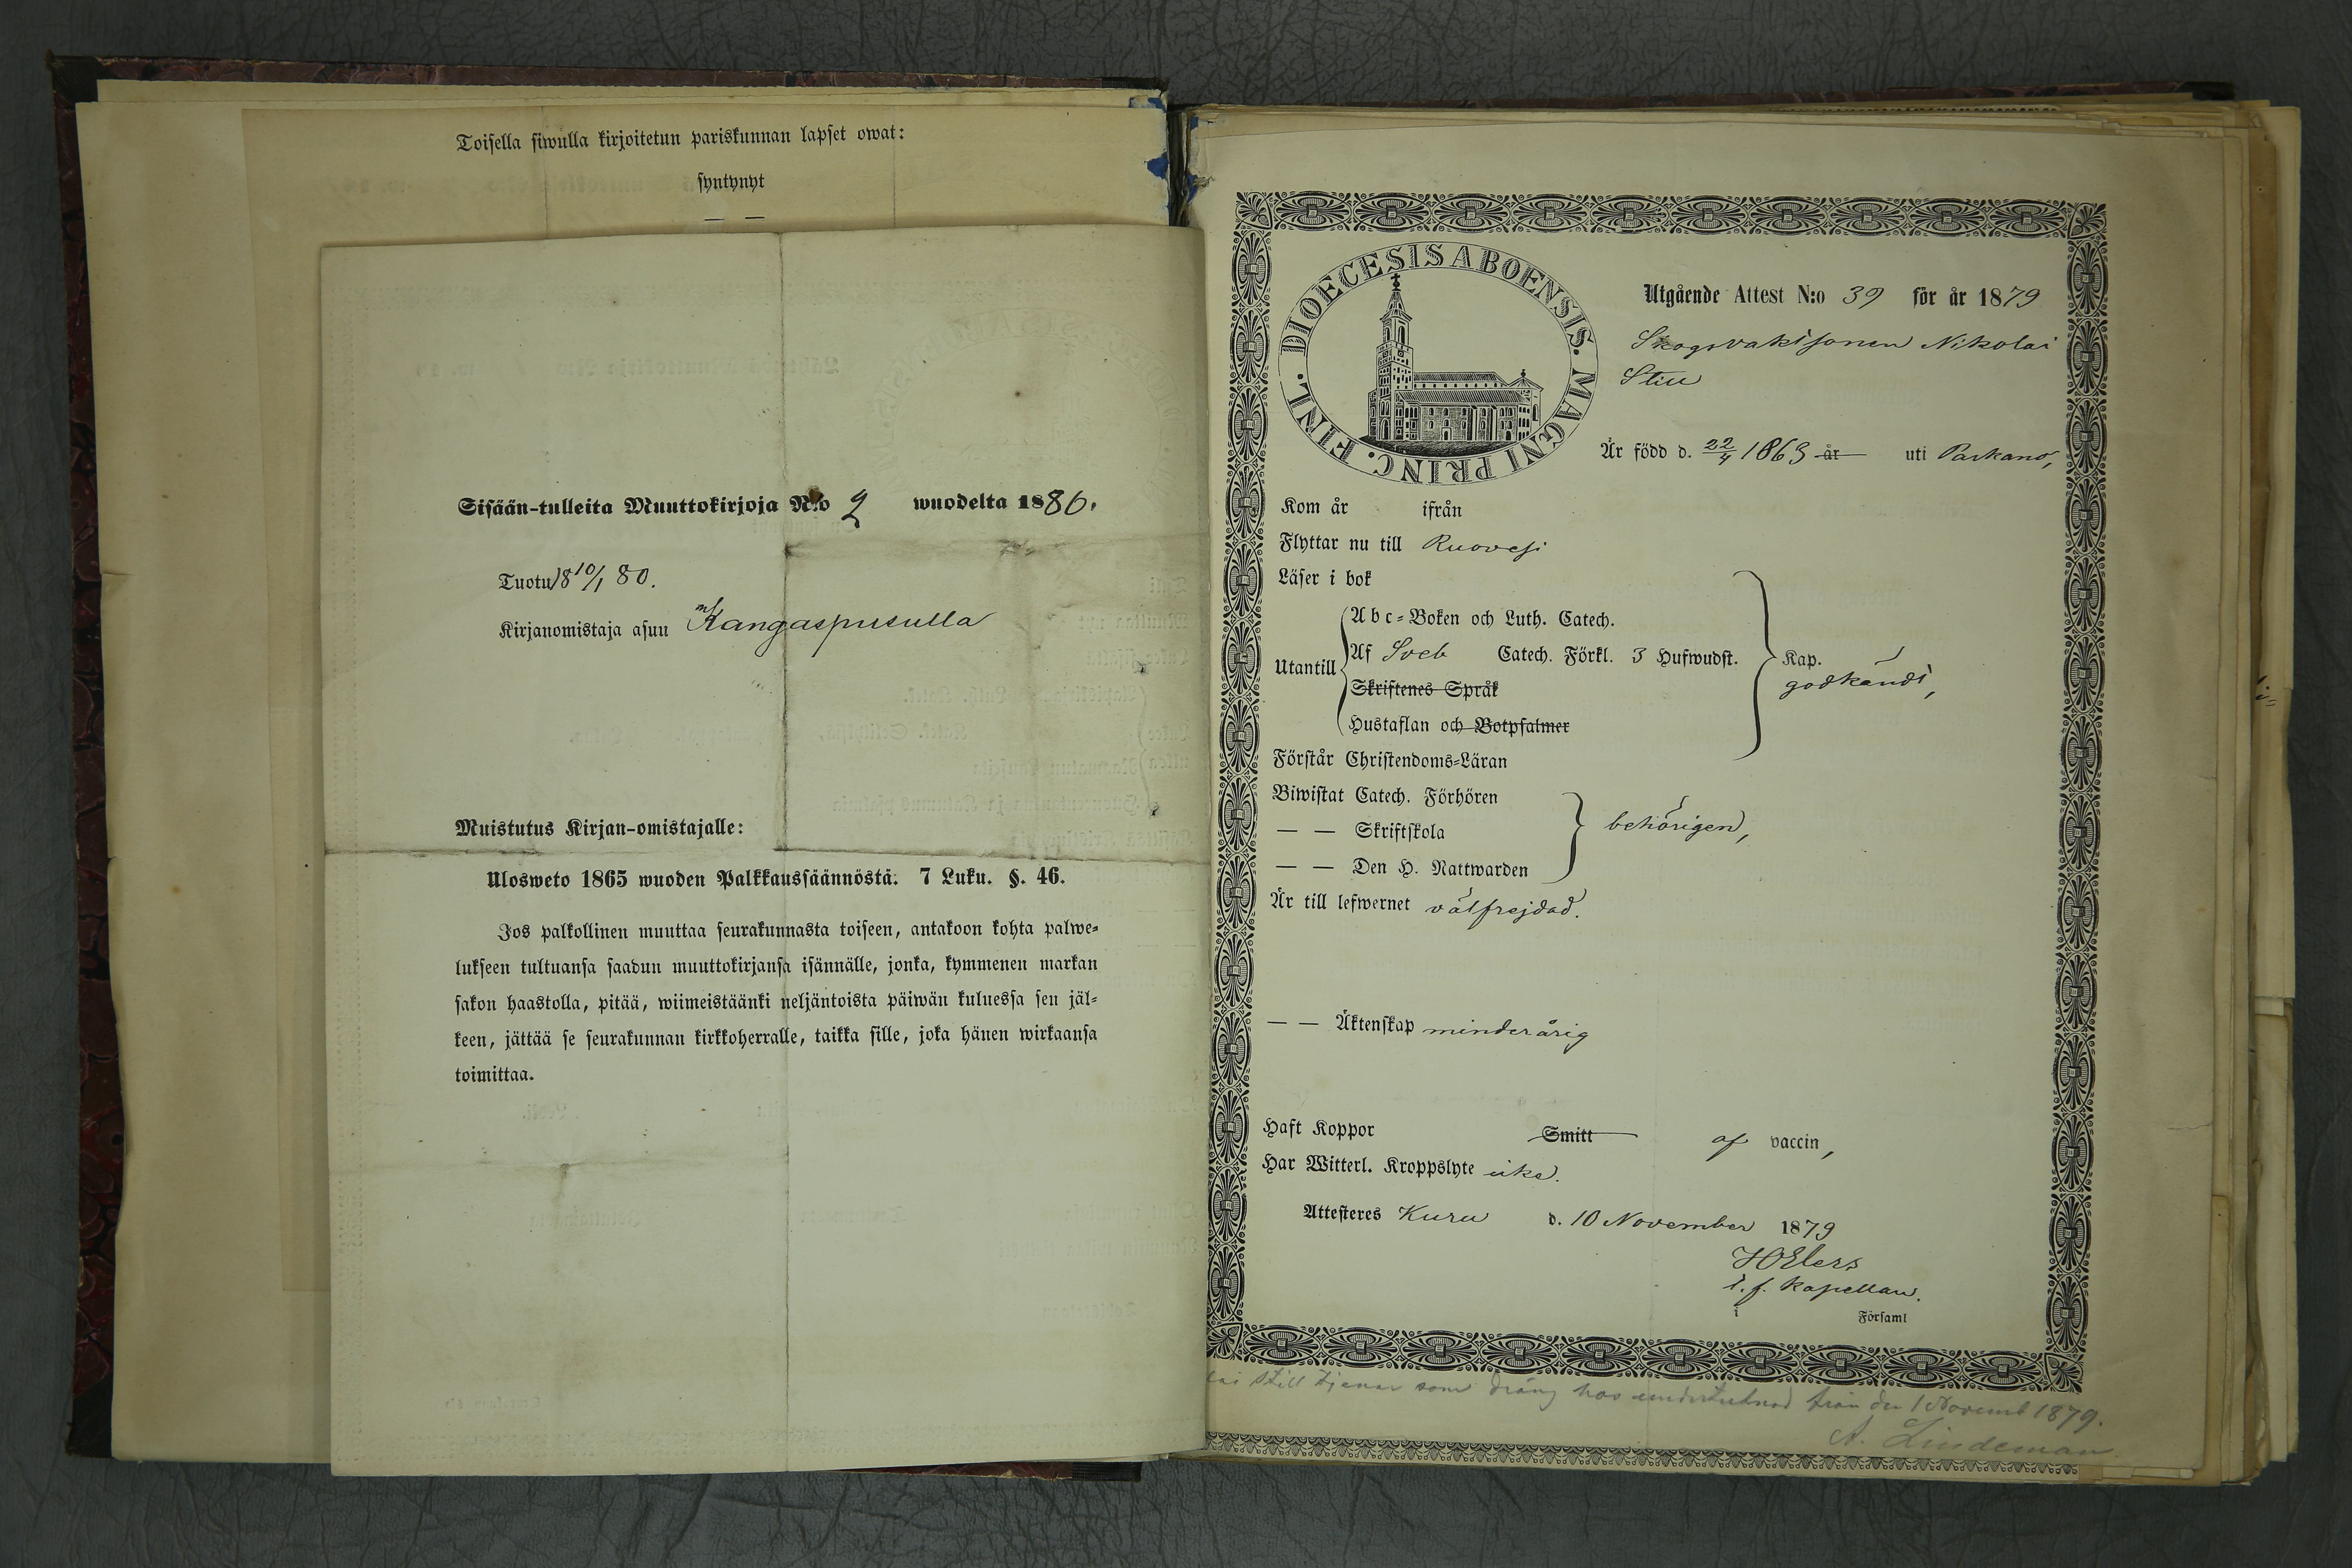 Toisella siwulla kirjoitetun pariskunnan lapset owat:
syntynyt
— —
Sisään-tulleita Muuttokirjoja N:o 2 wuodelta 1880.
Tuotu 18 10/1 80.
Kirjanomistaja asuu Kangaspusulla
Muistutus Kirjan-omistajalle:
Ulosweto 1865 wuoden Palkkaussäännöstä. 7 Luku. §. 46.
Jos palkollinen muuttaa seurakunnasta toiseen, antakoon kohta palwe-
lukseen tultuansa saadun muuttokirjansa isännälle, jonka, kymmenen markan
sakon haastolla, pitää, wiimeistäänki neljäntoista päiwän kuluessa sen jäl-
keen, jättää se seurakunnan kirkkoherralle, taikka sille, joka hänen wirkaansa
toimittaa.
DIOECESIS ABOENSIS. MAGNI PRINC. FINL.
Utgående Attest N:o 39 för år 1879
Skogsvaktsonen Nikolai
Still
Är född d. 22/4 1863 år uti Parkano,
Kom år ifrån
Flyttar nu till Ruovesi
Läser i bok
Utantill
Abc-Boken och Luth. Catech.
Af Sveb Catech. Förkl. 3 Hufwudst.
Skriftenes Språk
Hustaflan och Botpsalmer
Kap.
godkändt,
Förstår Christendoms-Läran
Biwistat Catech. Förhören
— — Skriftskola
— — Den H. Nattwarden
behörigen,
Är till lefwernet välfrejdad.
— — Äktenskap minderårig
Haft Koppor Smitt af vaccin,
Har Witterl. Kroppslyte icke.
Attesteres Kuru d. 10 November 1879
HOElers
i. f. Kapellan.
i Församl
lai Still tjenar som dräng hos undertecknad från den 1 Novemb 1879.
A. Lindeman